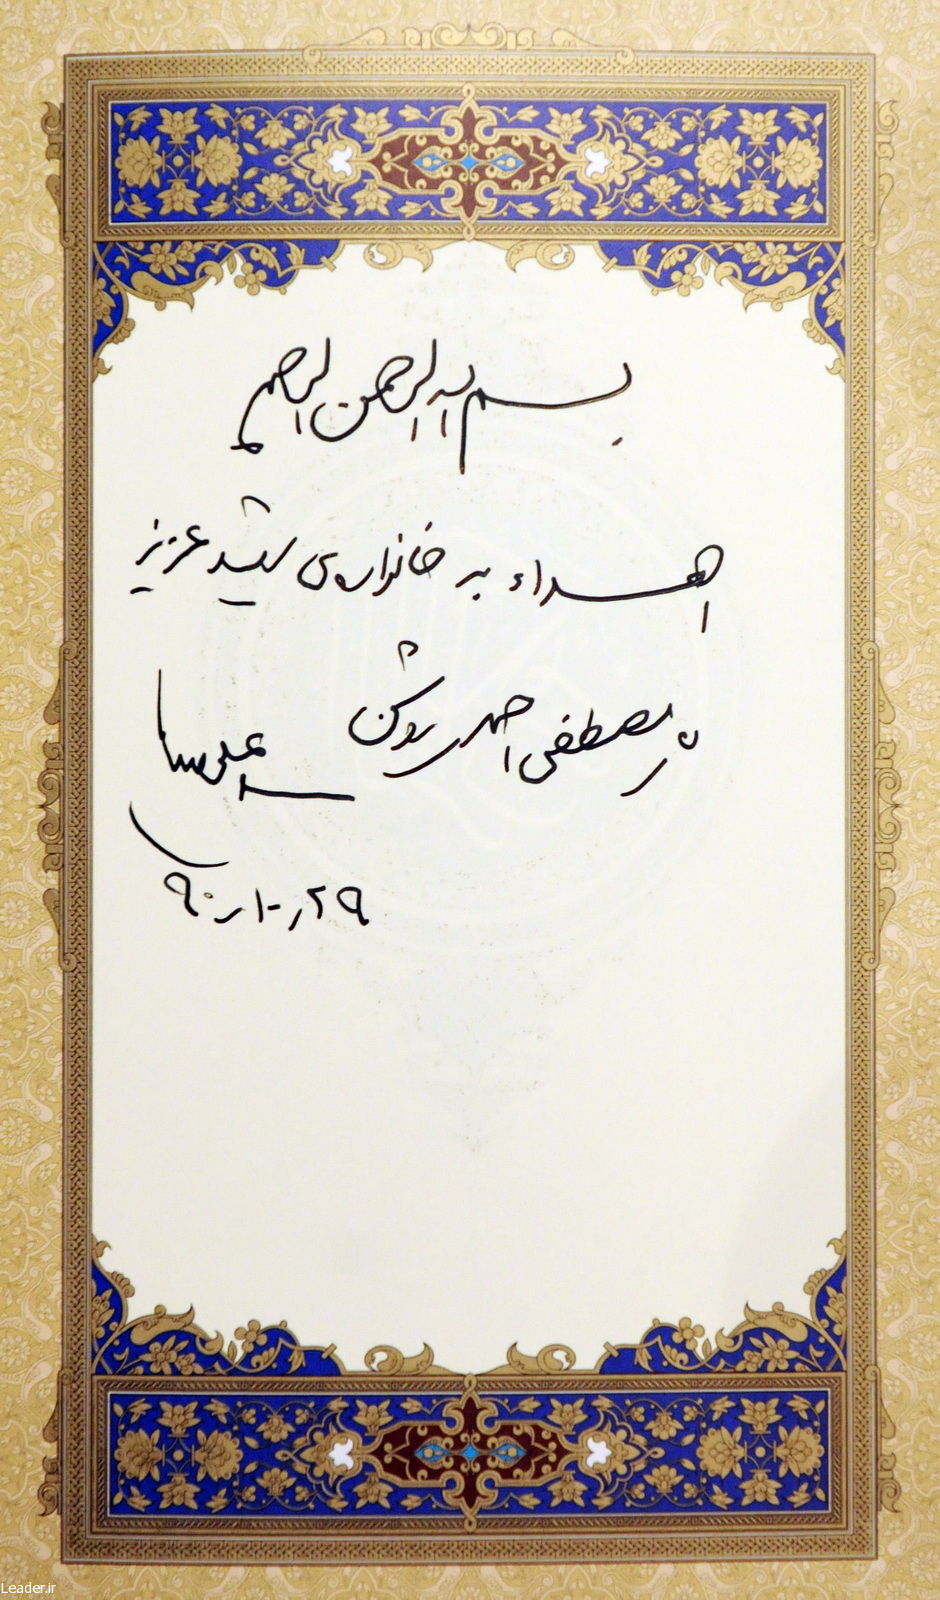 بسم الله الرحمن الرحیم
اهداء به خانواده‌ی شهید عزیز
مصطفی احمدی روشن
سیدعلی خامنه‌ای
۹۰/۱۰/۲۹
Leader.ir